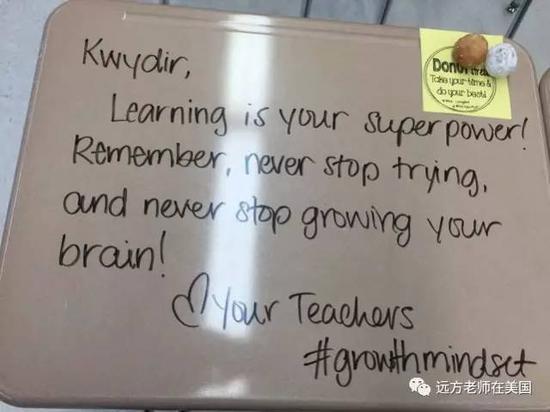 Kwydir,
Learning is your superpower!
Remember, never stop trying,
and never stop growing your
brain!
♡ Your Teachers
#growthmindset
Donut
Take your time &
do your best!
远方老师在美国